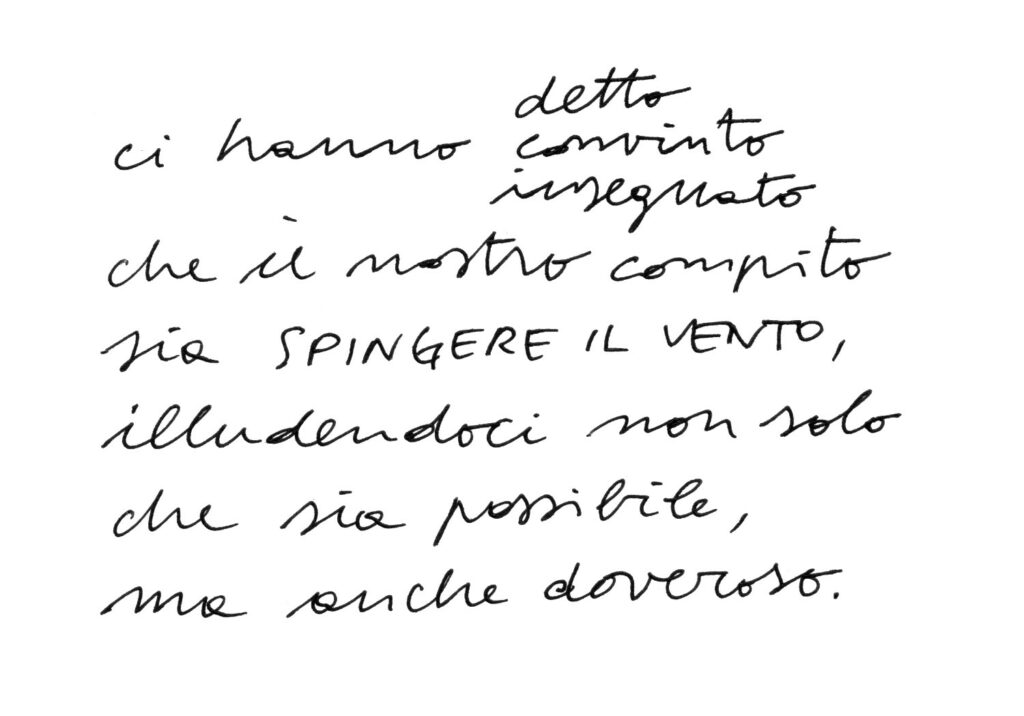 detto
ci hanno convinto
insegnato
che il nostro compito
sia SPINGERE IL VENTO,
illudendoci non solo
che sia possibile,
ma anche doveroso.